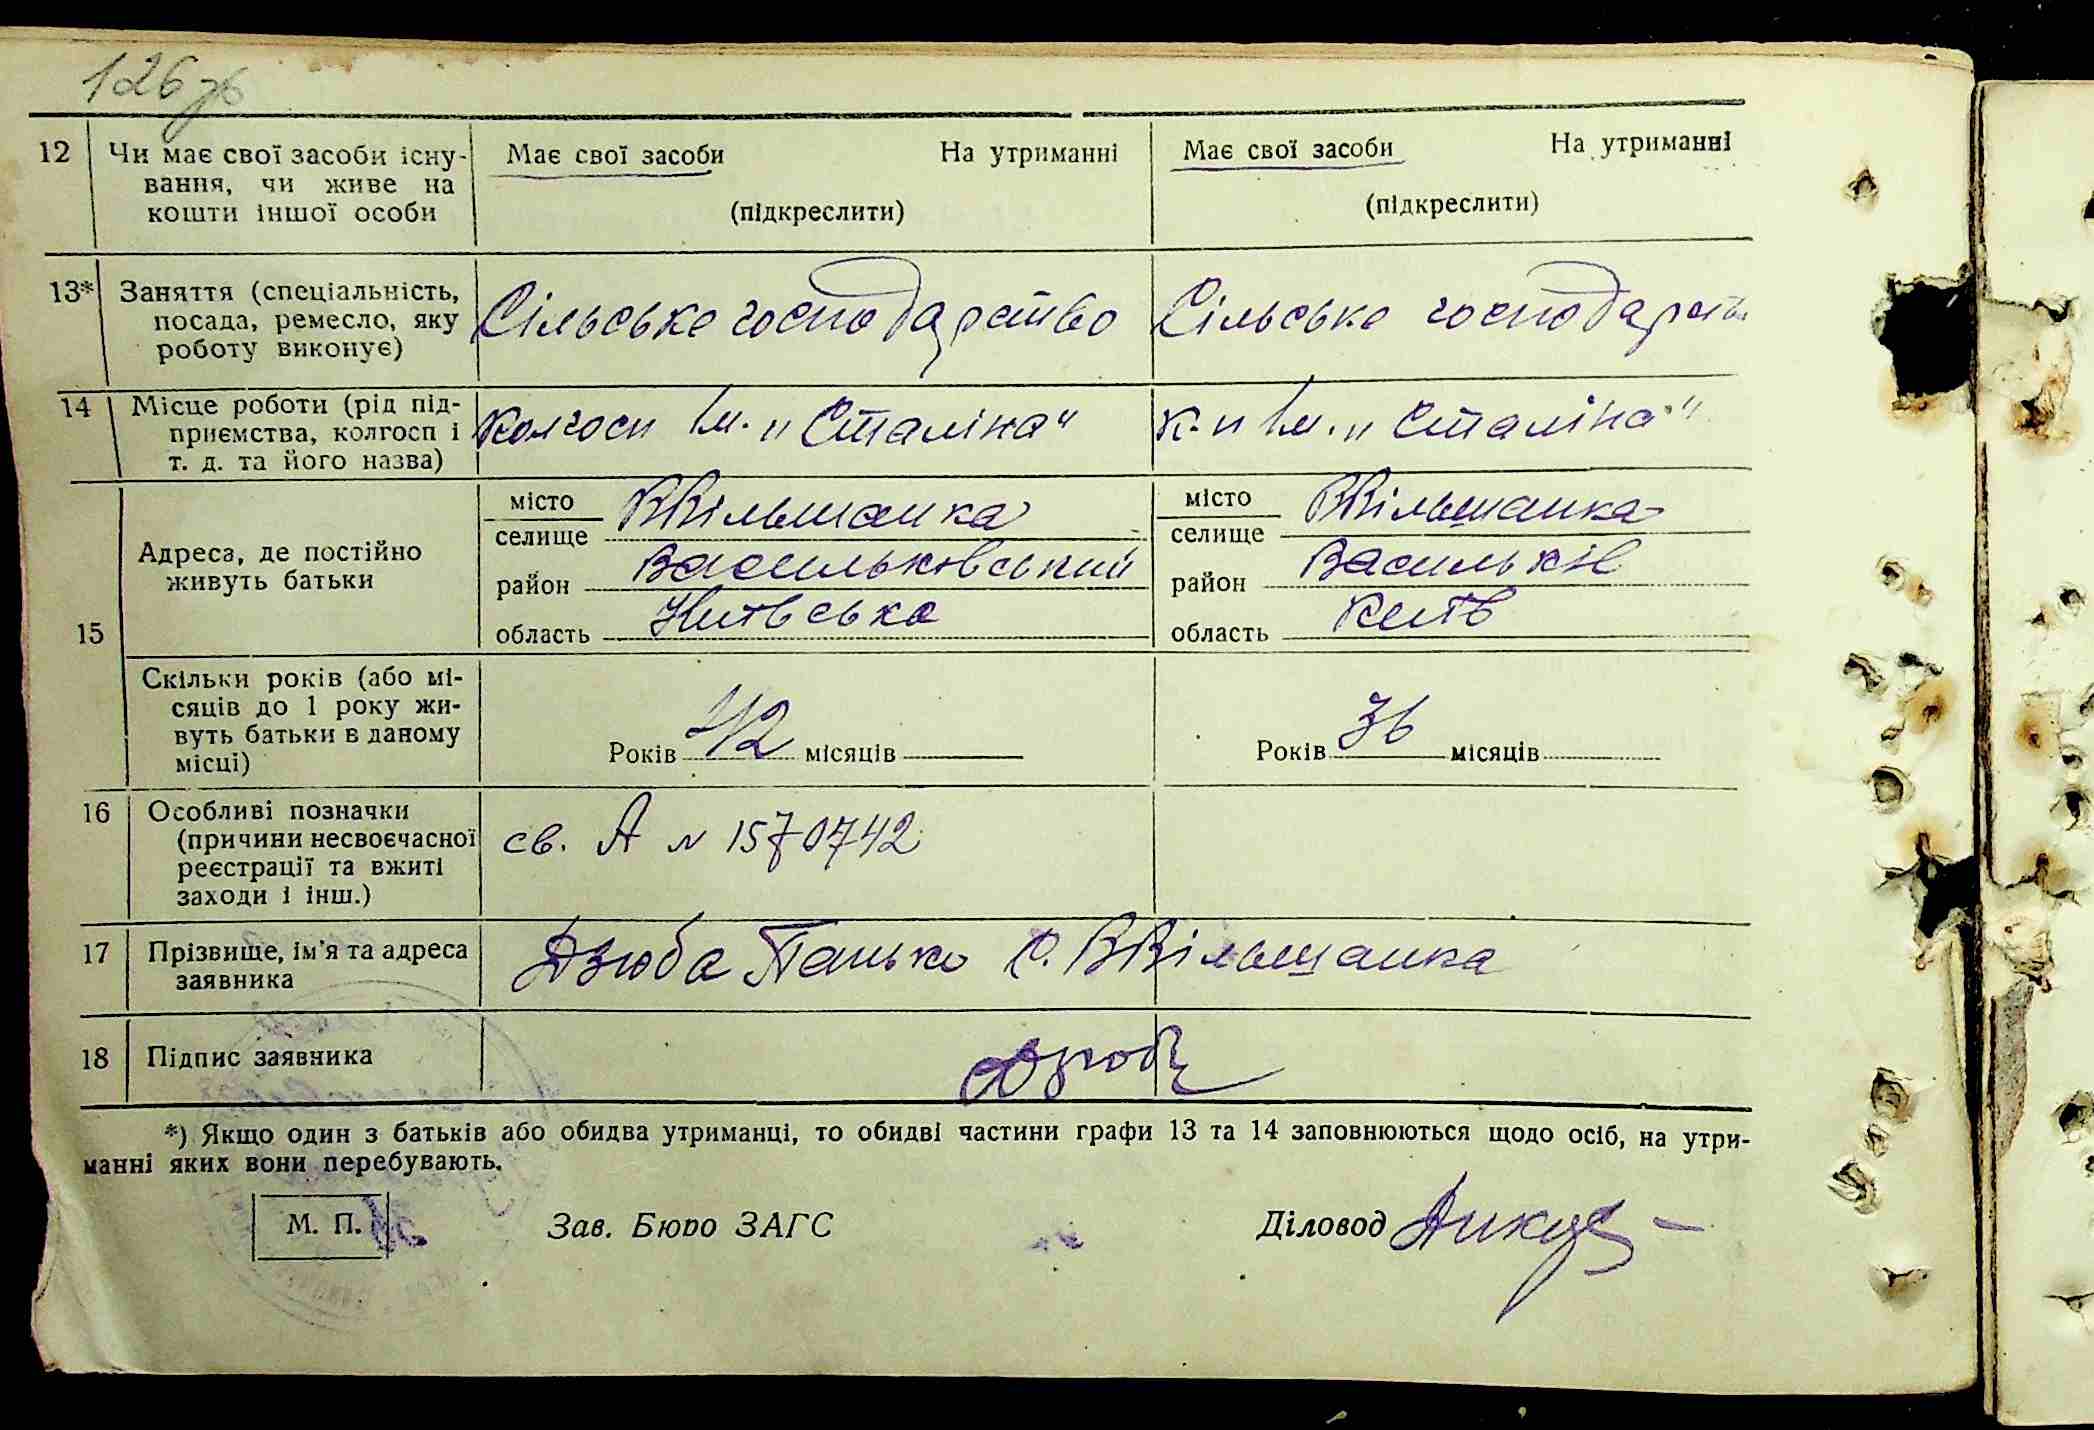 126 зв
12 Чи має свої засоби існу- Має свої засоби На утриманні Має свої засоби На утриманні
вання, чи живе на
кошти іншої особи (підкреслити) (підкреслити)
13* Заняття (спеціальність,
посада, ремесло, яку Сільське господарство Сільське господарств
роботу виконує)
14 Місце роботи (рід під-
приємства, колгосп і Колгосп Ім. „Сталіна" к-п Ім. „Сталіна"
т. д. та його назва)
15
Адреса, де постійно
живуть батьки
місто ВВільшанка місто ВВільшанка
селище селище
район Васильковський район Васильків
область Київська область Київ
Скільки років (або мі-
сяців до 1 року жи-
вуть батьки в даному Років 42 місяців Років 36 місяців
місці)
16 Особливі позначки
(причини несвоєчасної св. А № 1570742
реєстрації та вжиті
заходи і інш.)
17 Прізвище, ім'я та адреса Дзюба Панько с. ВВільшанка
заявника
18 Підпис заявника
*) Якщо один з батьків або обидва утриманці, то обидві частини графи 13 та 14 заповнюються щодо осіб, на утри-
манні яких вони перебувають.
М. П. Зав. Бюро ЗАГС Діловод